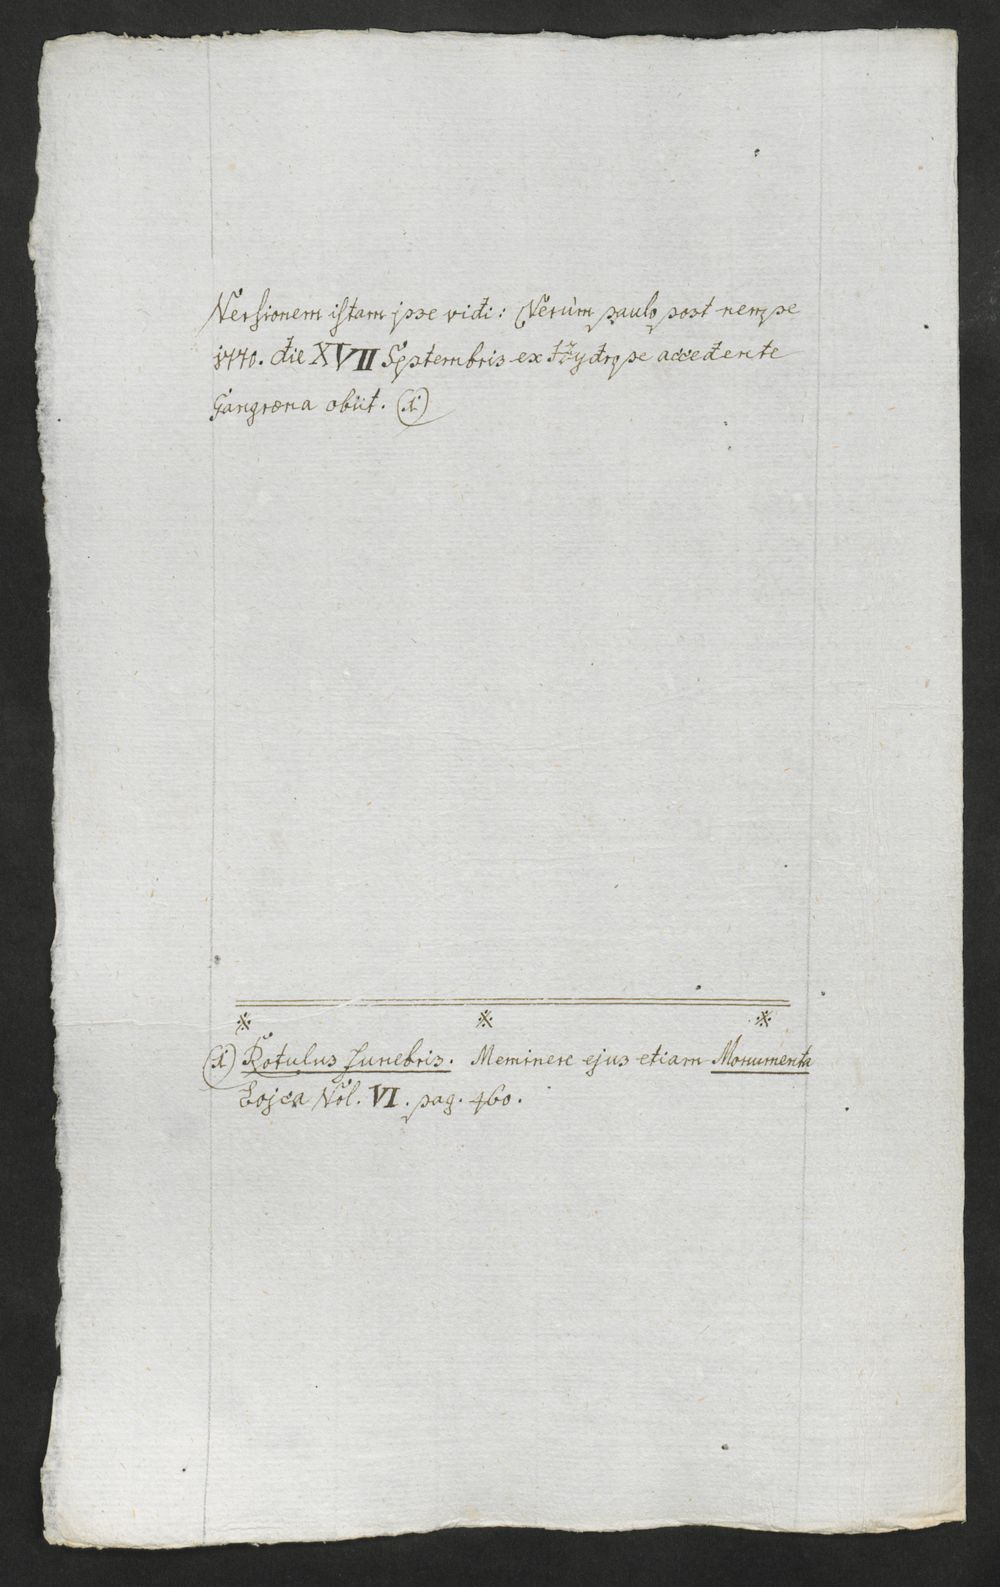 Versionem istam jpse vidi: Verùm paulo post nempe
1770. die XVII Septembris ex Hydrope accedente
Gangræna obiit. (1)
(1) Rotulus Funebris. Meminere ejus etiam Monumenta
Bojca Vol. VI. pag. 460.